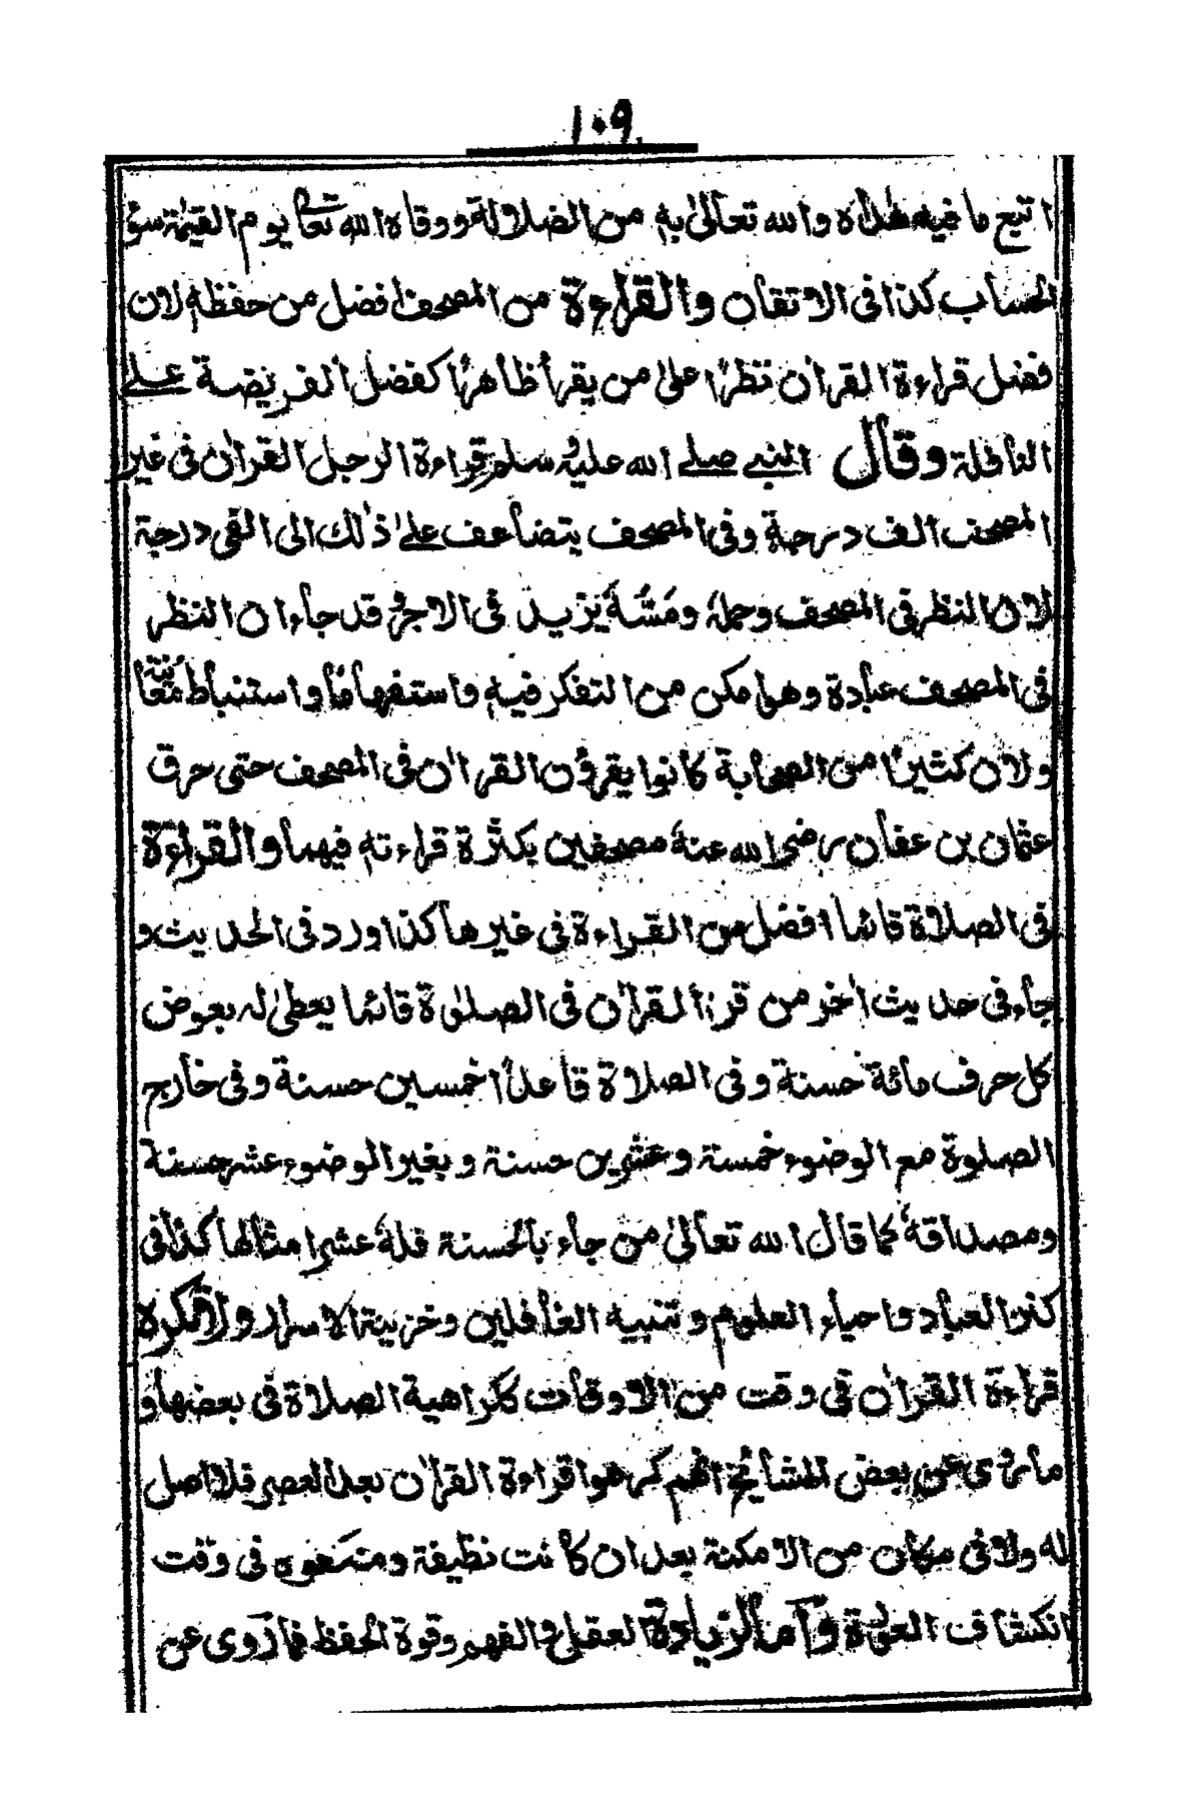 ١٠٩
اتبع ما فيه هداه والله تعالىٰ به من الضلالة ووقاه الله تعالى يوم القيٰمة سوٓ
الحساب كذا فى الاتقان والقراءة من المصحف افضل من حفظه لان
فضل قراءة القراٰن نظرًا علىٰ من يقرأ ظاهرًا كفضل الفريضة علے
النافلة وقال النبے صلے الله عليه وسلم قراءة الرجل القراٰن فى غير
المصحف الف درجة وفى المصحف يتضاعف علےٰ ذٰلك الى الفى درجة
لان النظر فى المصحف وحملهٗ ومَسُّهٗ يزيد فى الاجر وقد جاء ان النظر
فى المصحف عبادة وهو امكن من التفكر فيه واستفهامًا واستنباط معانيه
ولان كثيرًا من الصحابة كانوا يقرؤن القراٰن فى المصحف حتى حرق
عثمان بن عفان رضى الله عنهٗ مصحفين بكثرة قراءته فيهما والقراءة
فى الصلاة قائما افضل من القراءة فى غيرها كذا ورد فى الحديث و
جاء فى حديث اٰخر من قرأ القراٰن فى الصلوٰة قائما يعطىٰ له بعوض
كل حرف مائة حسنة وفى الصلاة قاعدًا خمسين حسنة وفى خارج
الصلوة مع الوضوء خمسة وعشرين حسنة وبغير الوضوء عشر حسنة
ومصداقهٗ كما قال الله تعالىٰ من جاء بالحسنة فلهٗ عشر امثالها كذا فى
كنز العباد واحياء العلوم وتنبيه الغافلين وخزينة الاسرار ولا تكره
قراءة القراٰن فى وقت من الاوقات ككراهية الصلاة فى بعضها و
ما روى عن بعض المشائخ انهم كرهوا قراءة القراٰن بعد العصر فلا اصل
له ولا فى مكان من الامكنة بعد ان كانت نظيفة ومنعوه فى وقت
انكشاف العورة واما لزيادة العقل والفهم وقوة الحفظ فما روى عن